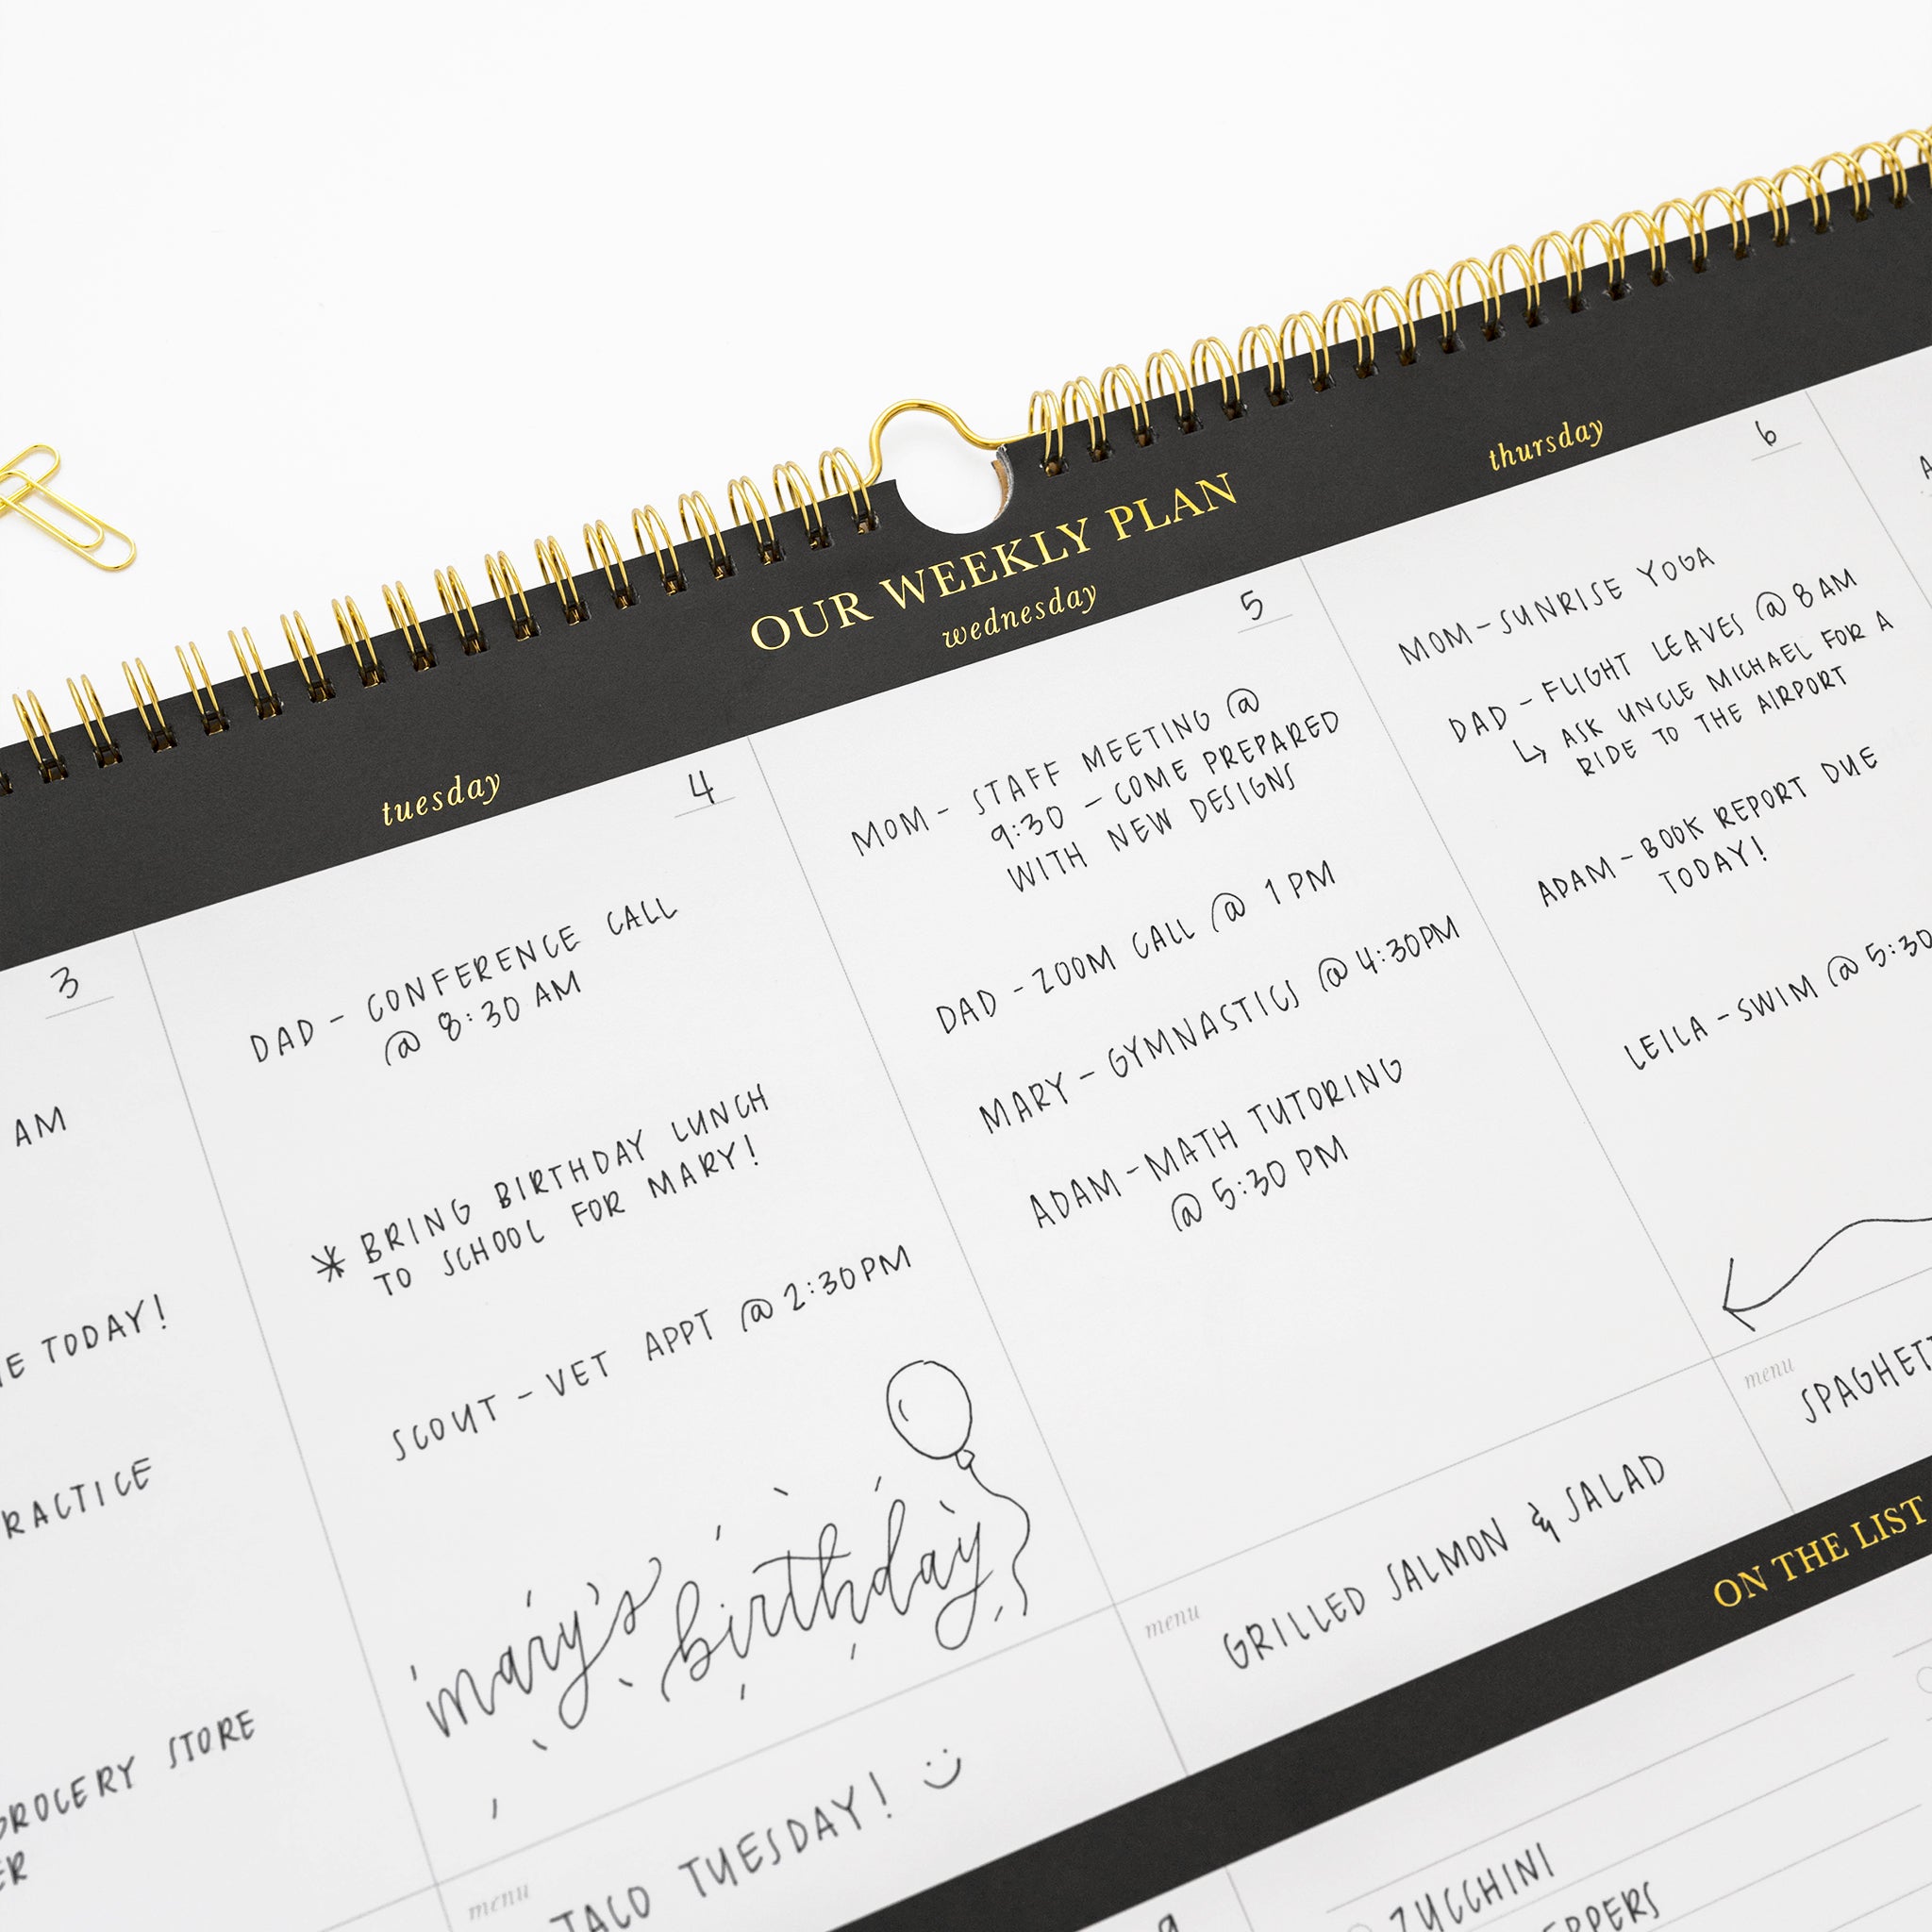 OUR WEEKLY PLAN
3
AM
TODAY!
GROCERY STORE
tuesday
4
DAD - CONFERENCE CALL
@ 8:30 AM
* BRING BIRTHDAY LUNCH
TO SCHOOL FOR MARY!
SCOUT - VET APPT @ 2:30PM
mary's birthday
menu
TACO TUESDAY!
wednesday
5
MOM - STAFF MEETING @
9:30 - COME PREPARED
WITH NEW DESIGNS
DAD - ZOOM CALL @ 1 PM
MARY - GYMNASTICS @ 4:30PM
ADAM - MATH TUTORING
@ 5:30 PM
menu
GRILLED SALMON & SALAD
thursday
6
MOM - SUNRISE YOGA
DAD - FLIGHT LEAVES @ 8 AM
↳ ASK UNCLE MICHAEL FOR A
RIDE TO THE AIRPORT
ADAM - BOOK REPORT DUE
TODAY!
LEILA - SWIM @ 5:30
menu
ON THE LIST
ZUCCHINI